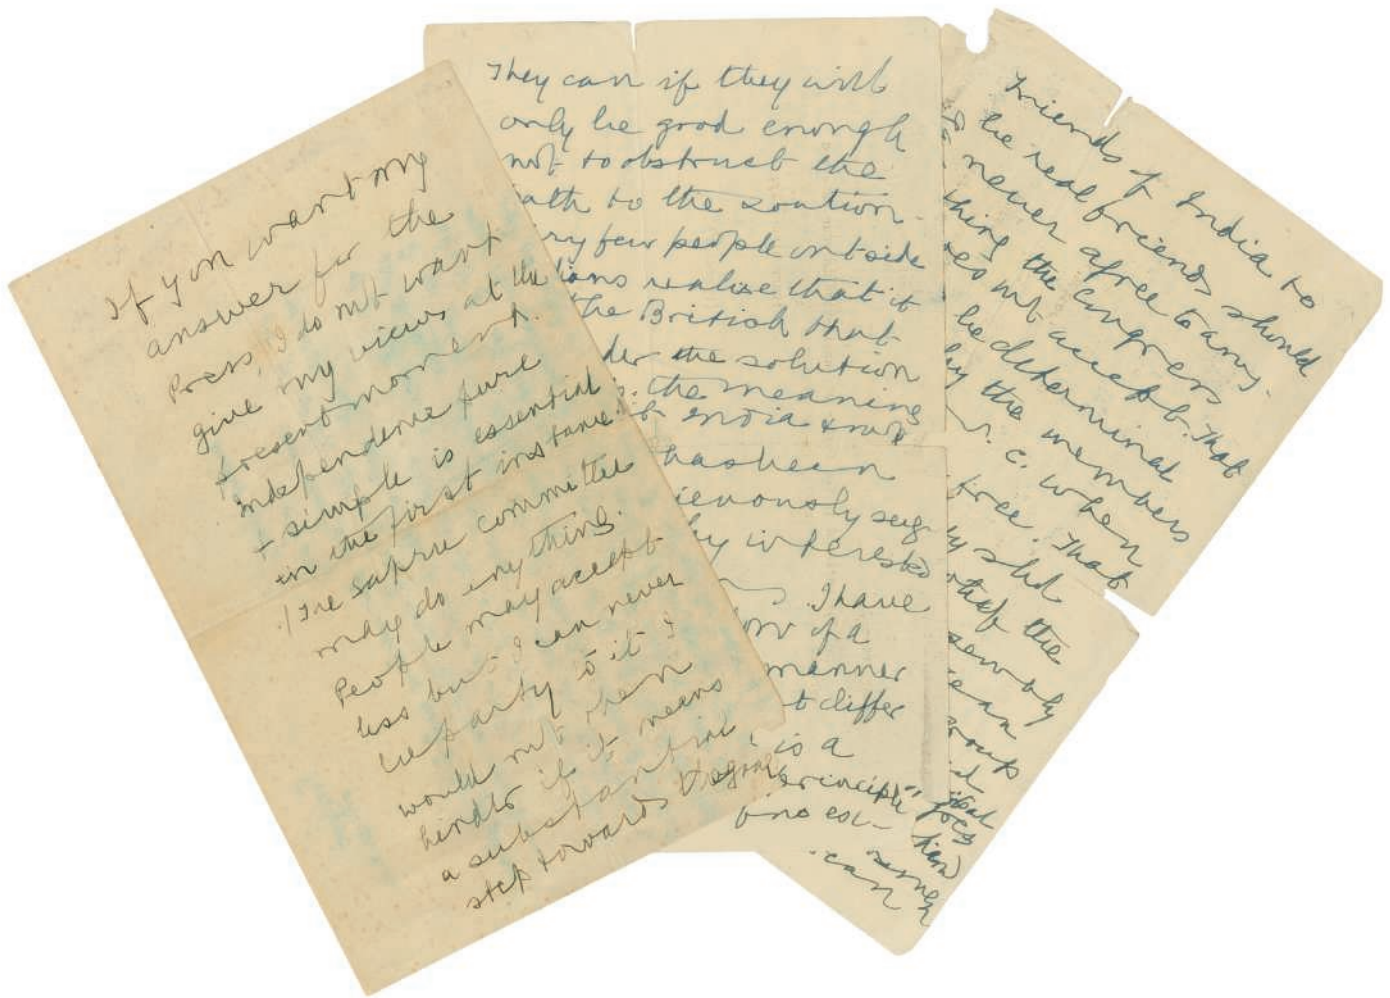 If you want my
answer for the
Press, I do not want
give my views at the
present moment.
Independence pure
+ simple is essential
in the first instance.
The Sapru Committee
may do anything.
People may accept
less but I can never
be party to it. I
would not then
hinder if it means
a substantial
step towards the goal
They can if they will
only be good enough
not to obstruct the
ath to the soution.
ry few people outside
realise that it
the British that
der the solution
. The meaning
India
has been
ievously
by interested
. I have
of a
manner
t differ
is a
principle"
no
can
Friends of India to
be real friends should
never agree to any-
thing the Congress
oes not accept. That
be determined
by the members
. C. when
free. That
shd
the
sembly
ean
group